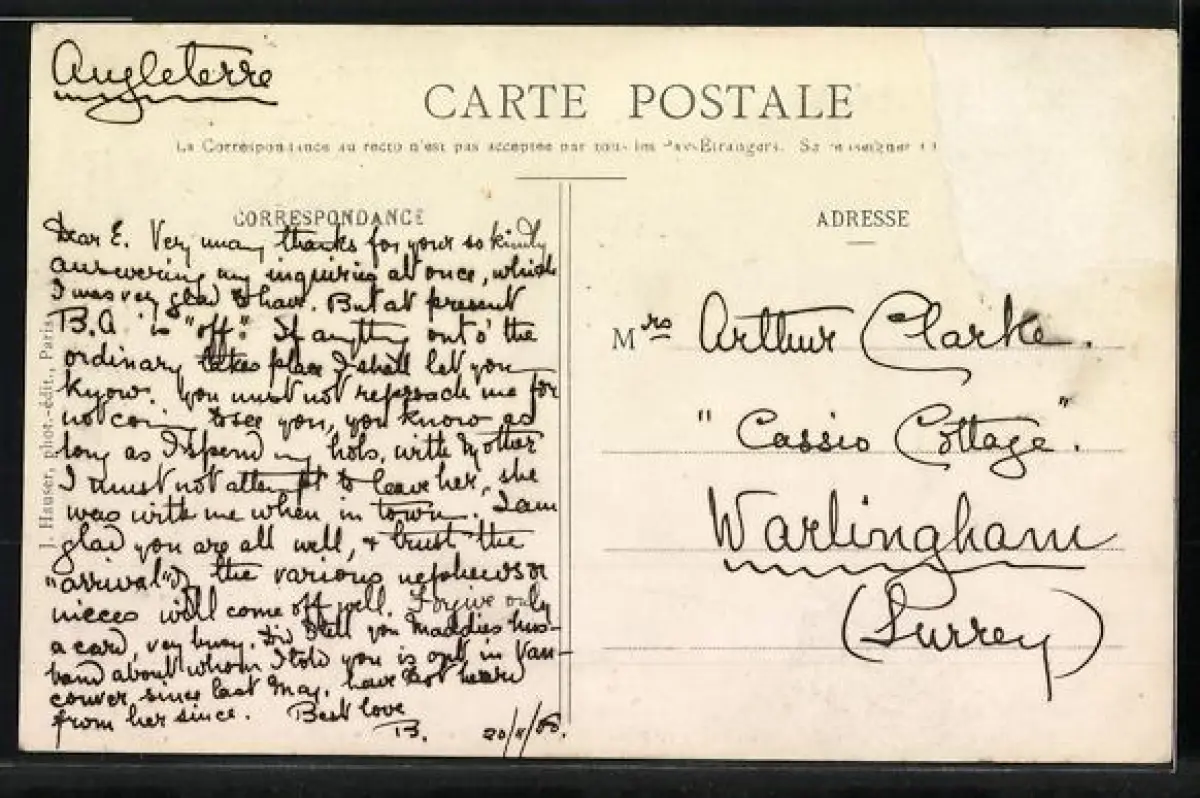 Angleterre
CARTE POSTALE
La Correspondance au recto n'est pas acceptée par tous les Pays Étrangers. Se renseigner
CORRESPONDANCE
ADRESSE
Dear E. Very many thanks for your so kindly
answering my inquiries at once, which
I was very glad to have. But at present
B.A is "off." If anything out o' the
ordinary takes place I shall let you
know. You must not reproach me for
not coming to see you, you know as
long as I spend my hols. with Mother
I must not attempt to leave her, she
was with me when in town. I am
glad you are all well, & trust the
"arrival" of the various nephews or
nieces will come off well. Forgive only
a card, very busy. Did I tell you Maddies hus-
band about whom I told you is out in Van-
couver since last May. have not heard
from her since. Best love
B. 20/ /
Mrs Arthur Clarke.
"Cassio Cottage".
Warlingham
(Surrey)
J. Hauser, phot.-édit., Paris